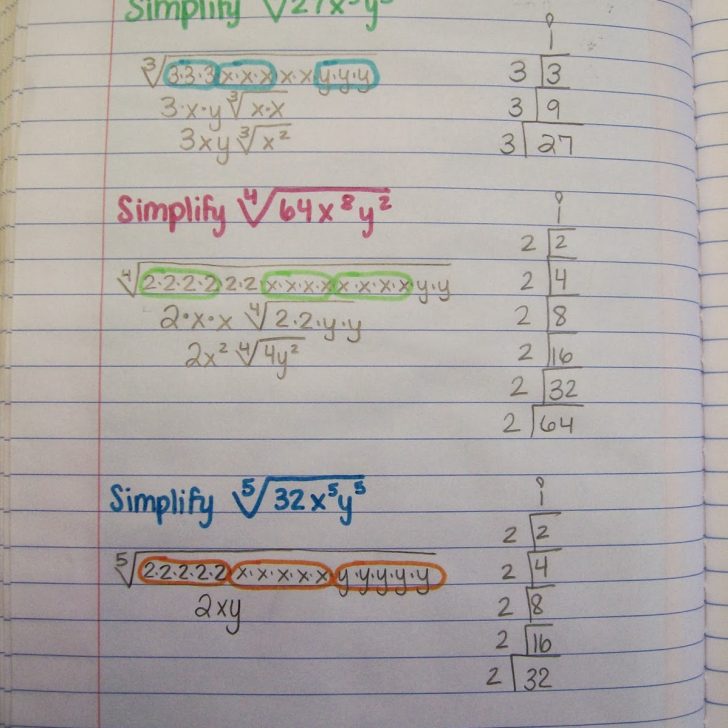 Simplify √27x⁵y³
∛3·3·3 x·x·x x·x y·y·y
3·x·y ∛x·x
3xy ∛x²
1
3 3
3 9
3 27
Simplify ⁴√64x⁸y²
⁴√2·2·2·2 2·2 x·x·x·x x·x·x·x y·y
2·x·x ⁴√2·2·y·y
2x² ⁴√4y²
1
2 2
2 4
2 8
2 16
2 32
2 64
Simplify ⁵√32x⁵y⁵
⁵√2·2·2·2·2 x·x·x·x·x y·y·y·y·y
2xy
1
2 2
2 4
2 8
2 16
2 32